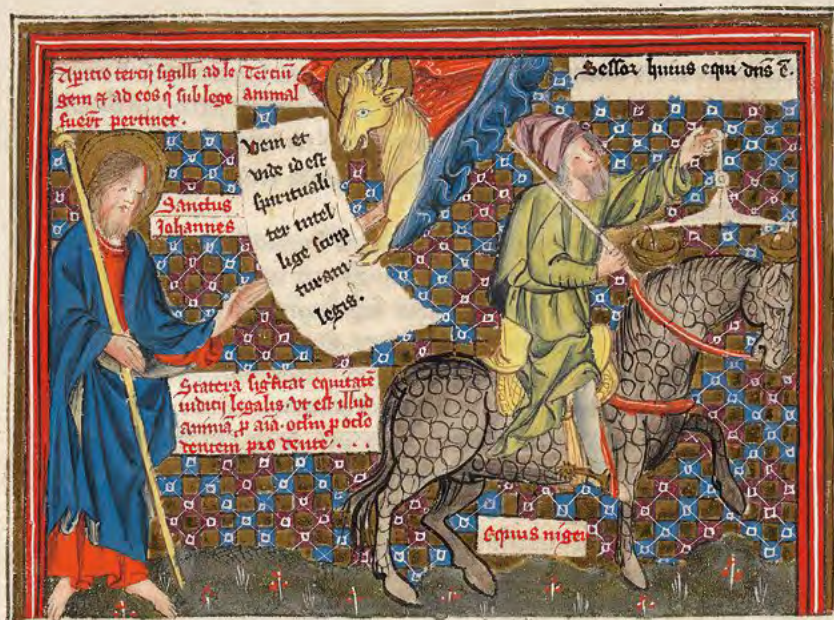 Apicio tercij sigilli ad le
gem ⁊ ad eos q̄ sub lege
fuer̄t pertinet.
Terciū
animal
Sessor huius equi dn̄s ē.
Veni et
vide id est
spirituali
ter intel
lige scrip
turam
legis.
Sanctus
Johannes
Statera sig̅ficat equitatē
iudicij legalis. vt est illud
animā p̱ aīa. oclm̄ p̱ oclo
dentem pro dente
Equus niger